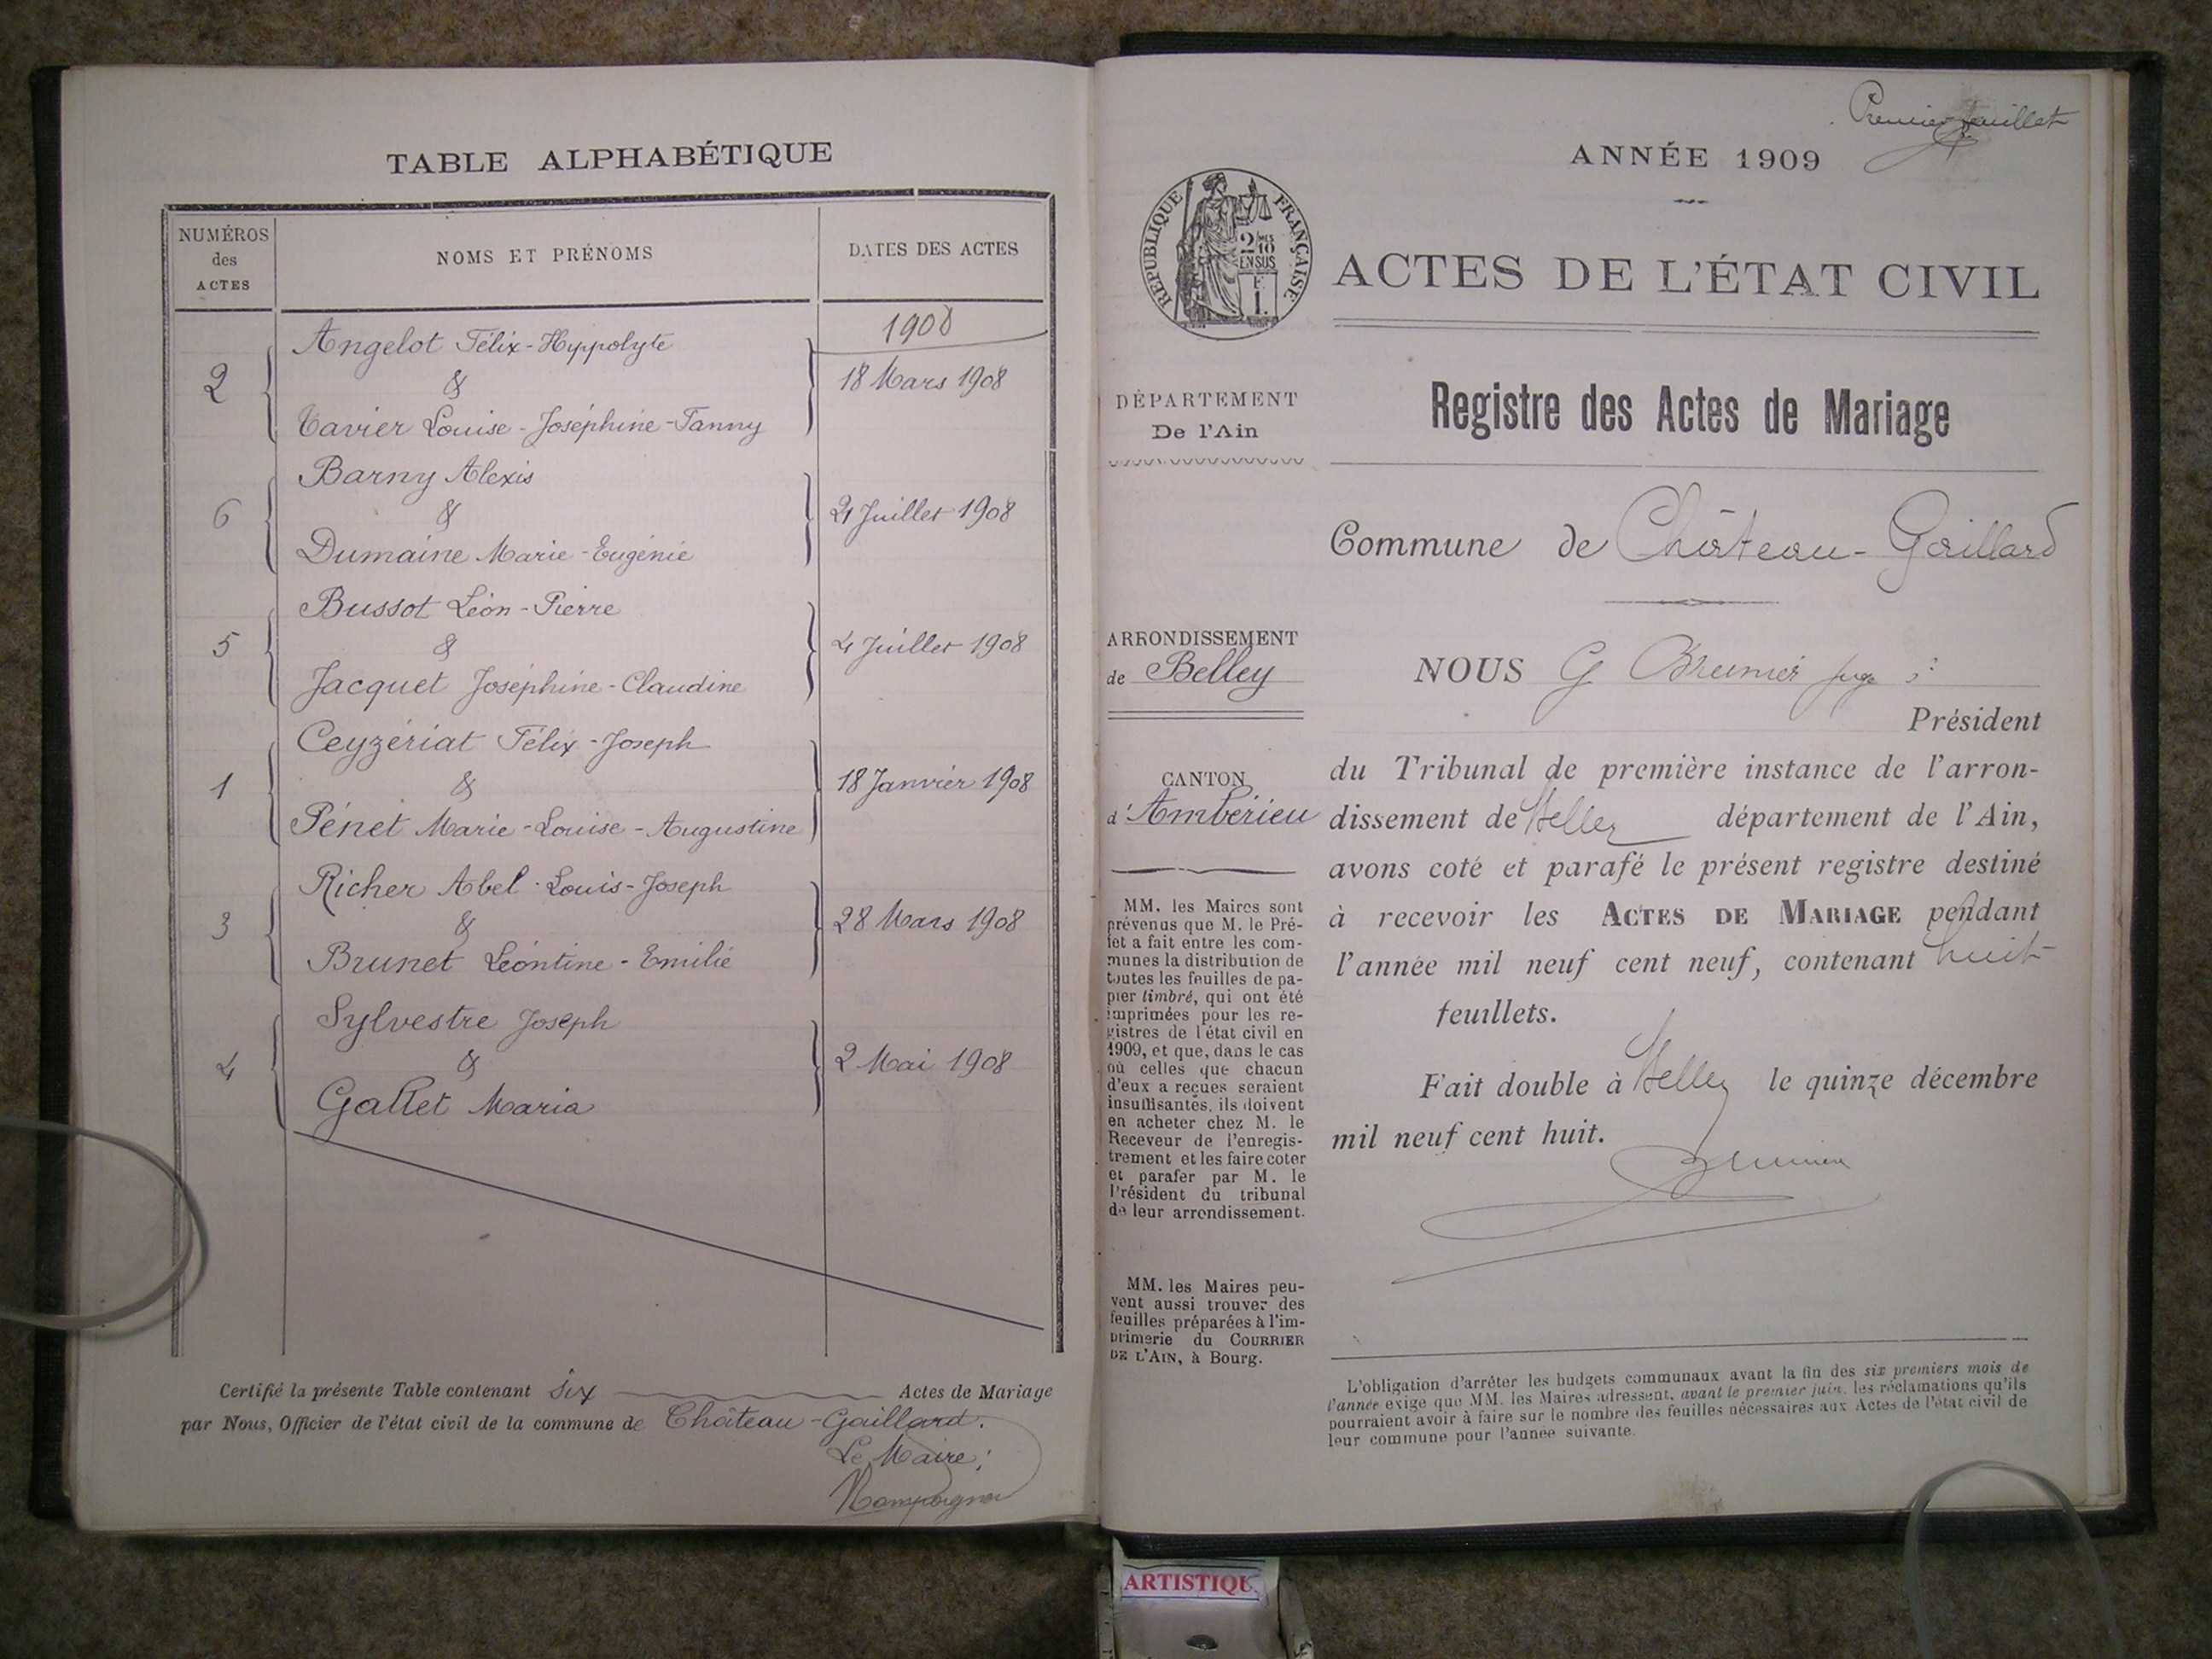 TABLE ALPHABÉTIQUE
NUMÉROS
des
ACTES
NOMS ET PRÉNOMS
DATES DES ACTES
1908
Angelot Félix-Hyppolyte
2
&
18 Mars 1908
Tavier Louise-Joséphine-Fanny
Barny Alexis
6
&
21 Juillet 1908
Dumaine Marie-Eugénie
Bussot Léon-Pierre
5
&
4 Juillet 1908
Jacquet Joséphine-Claudine
Ceyzériat Félix-Joseph
1
&
18 Janvier 1908
Pénet Marie-Louise-Augustine
Richer Abel-Louis-Joseph
3
&
28 Mars 1908
Brunet Léontine-Emilie
Sylvestre Joseph
4
&
2 Mai 1908
Gallet Maria
Certifié la présente Table contenant six Actes de Mariage
par Nous, Officier de l'état civil de la commune de Château-Gaillard.
Le Maire;
Premier feuillet
ANNÉE 1909
RÉPUBLIQUE FRANÇAISE
2/10MES
EN SUS
1F.
ACTES DE L'ÉTAT CIVIL
DÉPARTEMENT
De l'Ain
Registre des Actes de Mariage
Commune de Château-Gaillard
ARRONDISSEMENT
de Belley
CANTON
d'Ambérieu
MM. les Maires sont
prévenus que M. le Pré-
fet a fait entre les com-
munes la distribution de
toutes les feuilles de pa-
pier timbré, qui ont été
imprimées pour les re-
gistres de l'état civil en
1909, et que, dans le cas
où celles que chacun
d'eux a reçues seraient
insuffisantes, ils doivent
en acheter chez M. le
Receveur de l'enregis-
trement et les faire coter
et parafer par M. le
Président du tribunal
de leur arrondissement.
MM. les Maires peu-
vent aussi trouver des
feuilles préparées à l'im-
primerie du COURRIER
DE L'AIN, à Bourg.
NOUS G Brunier juge
Président
du Tribunal de première instance de l'arron-
dissement de Belley département de l'Ain,
avons coté et parafé le présent registre destiné
à recevoir les ACTES DE MARIAGE pendant
l'année mil neuf cent neuf, contenant huit
feuillets.
Fait double à Belley le quinze décembre
mil neuf cent huit.
Brunier
L'obligation d'arrêter les budgets communaux avant la fin des six premiers mois de
l'année exige que MM. les Maires adressent, avant le premier juin, les réclamations qu'ils
pourraient avoir à faire sur le nombre des feuilles nécessaires aux Actes de l'état civil de
leur commune pour l'année suivante.
ARTISTIQU